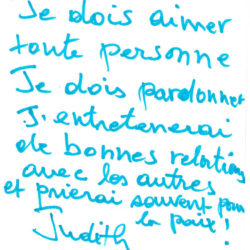 Je dois aimer
toute personne
Je dois pardonner
J'entretenerai
de bonnes relations
avec les autres
et prierai souvent pour
la paix !
Judith